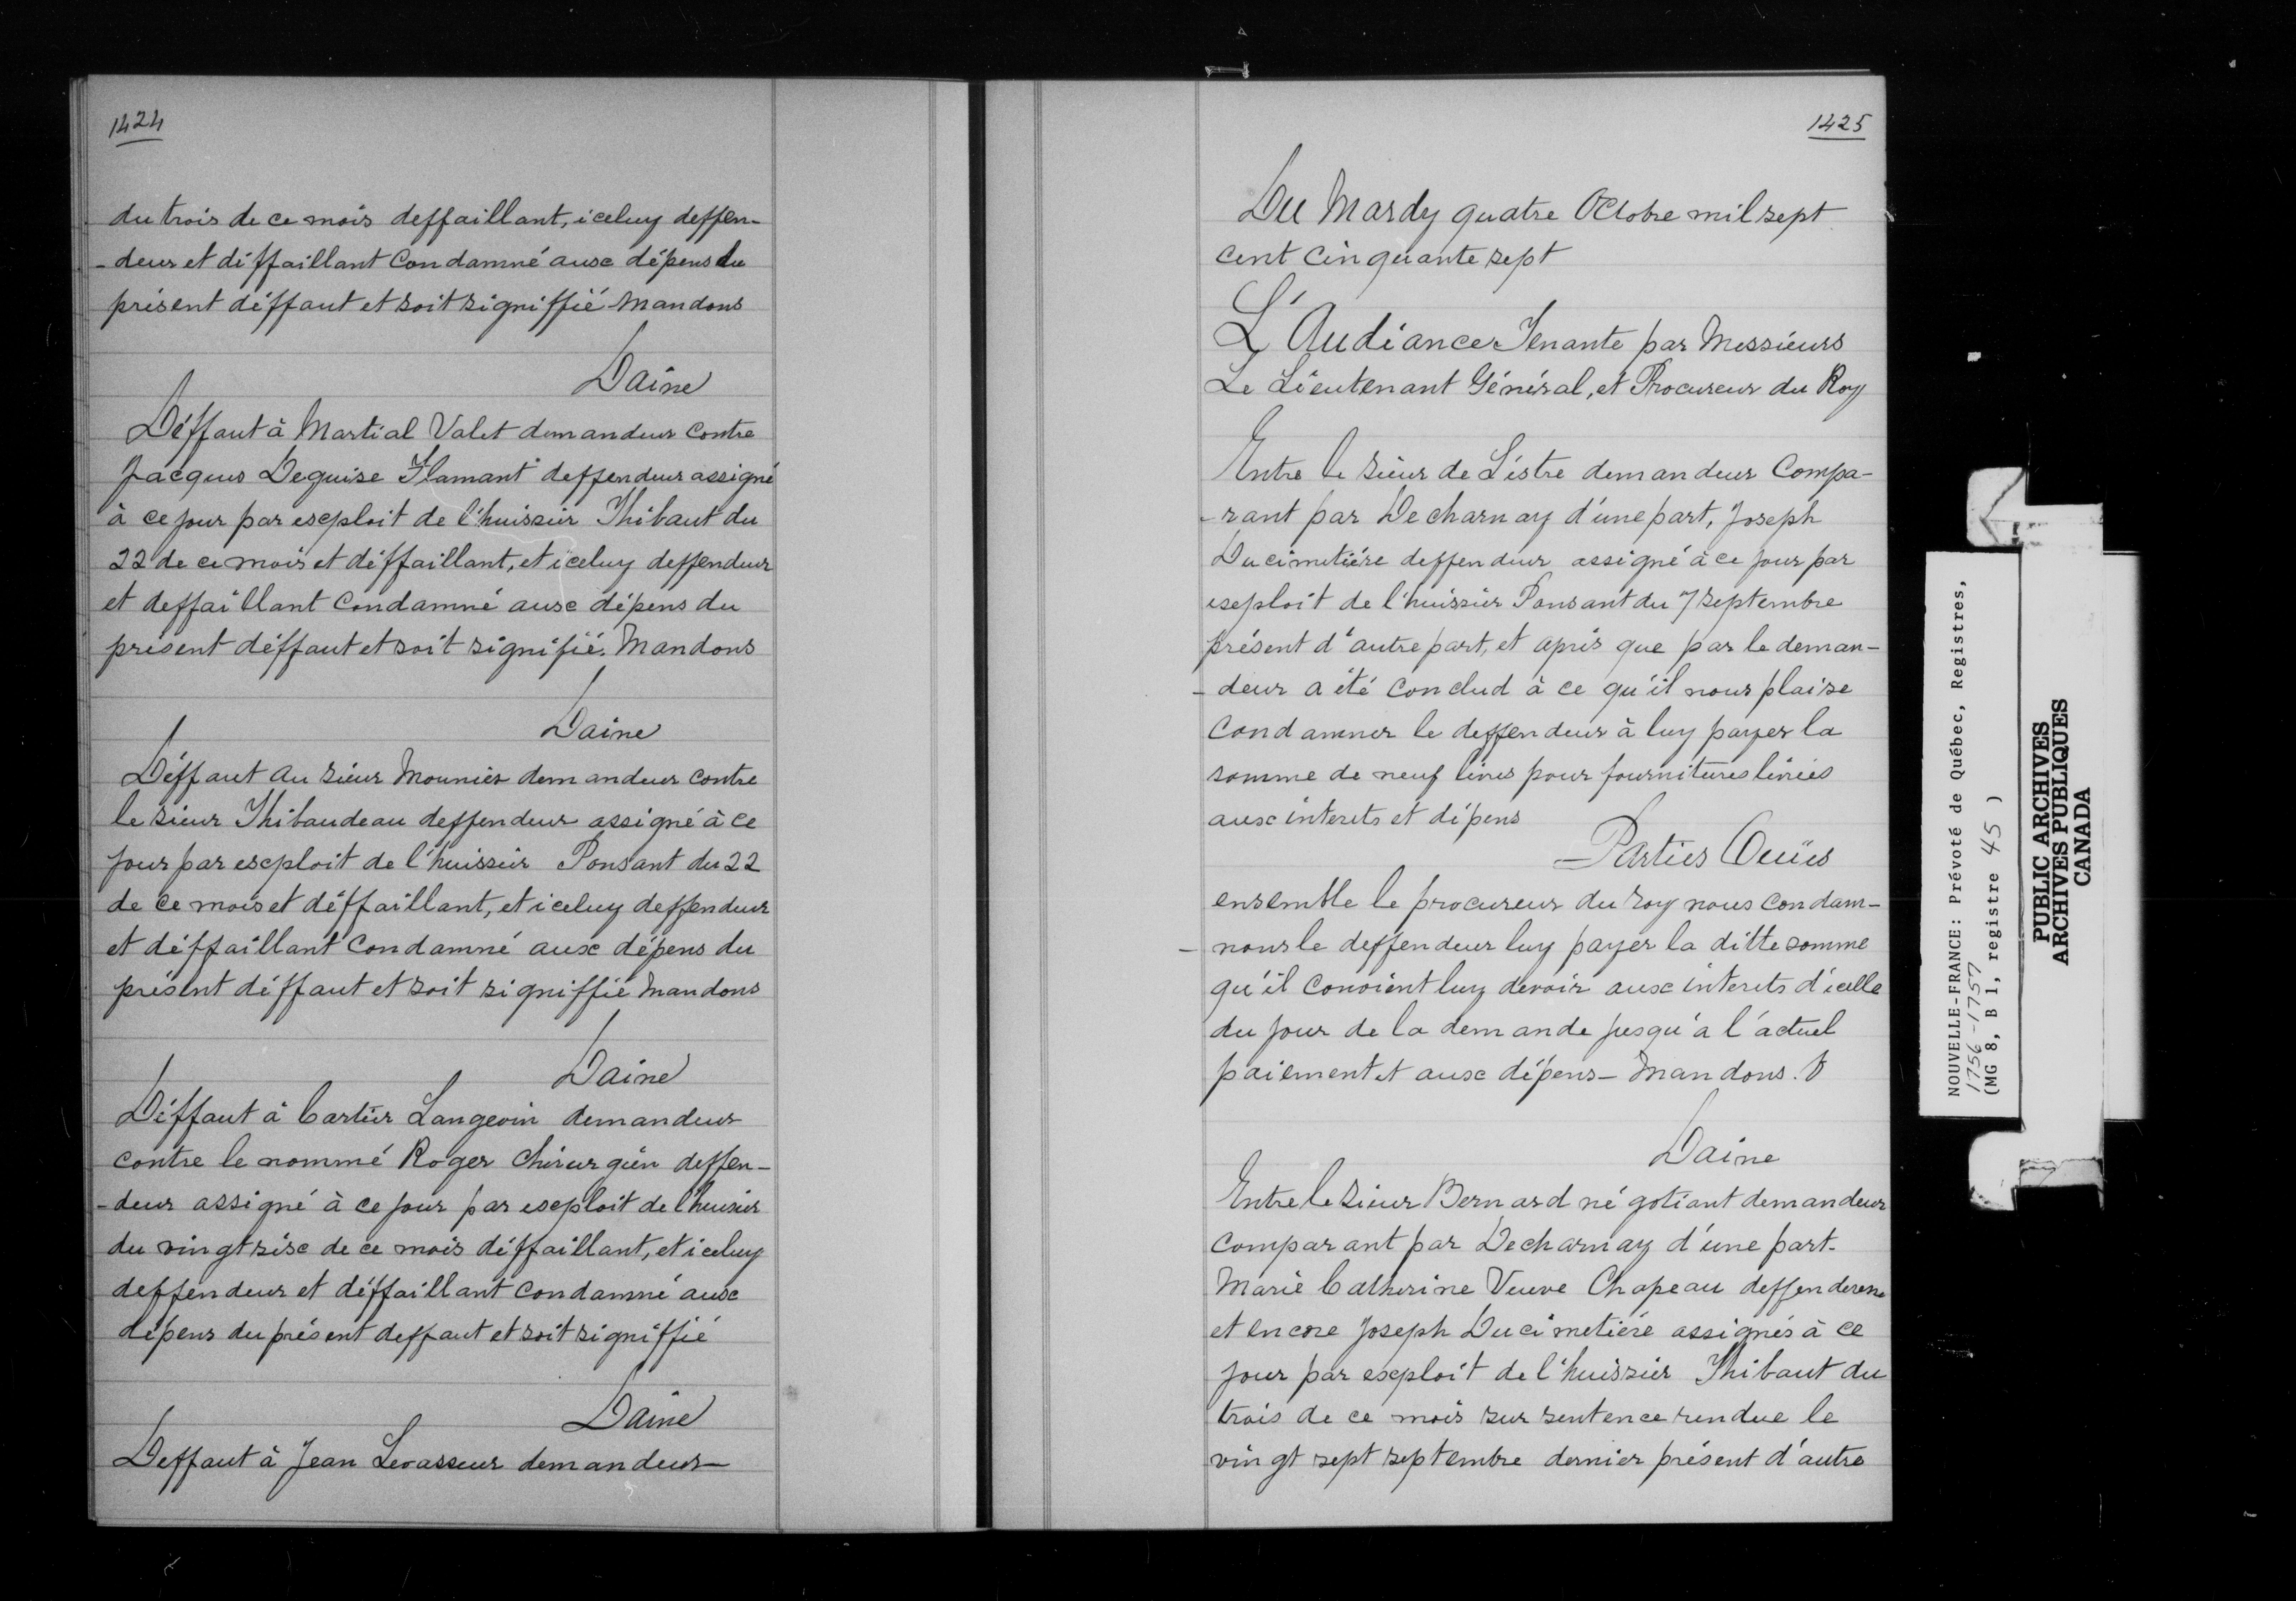 1424
du trois de ce mois deffaillant, iceluy deffen-
-deur et déffaillant Condamné aux dépens du
présent déffaut et soit signiffié Mandons
Daine
Déffaut à Martial Valet demandeur contre
Jacques Deguise Flamant deffendeur assigné
à ce jour par exploit de l'huissier Thibaut du
22 de ce mois et déffaillant, et iceluy deffendeur
et deffaillant Condamné aux dépens du
présent déffaut et soit signifié. Mandons
Daine
Déffaut au sieur Mounier demandeur contre
le sieur Thibaudeau deffendeur assigné à ce
jour par exploit de l'huissier Ponsant du 22
de ce mois et déffaillant, et iceluy deffendeur
et déffaillant Condamné aux dépens du
présent déffaut et soit signiffié Mandons
Daine
Déffaut à Cartier Langevin demandeur
contre le nommé Roger Chirurgien deffen-
-deur assigné à ce jour par exploit de l'huissier
du vingt six de ce mois déffaillant, et iceluy
deffendeur et déffaillant Condamné aux
dépens du présent deffaut et soit signiffié
Daine
Deffaut à Jean Levasseur demandeur-
1425
Du Mardy quatre Octobre mil sept
cent Cinquante sept
L'Audiance Tenante par Messieurs
Le Lieutenant Général, et Procureur du Roy
Entre le sieur de Léstre demandeur Compa-
-rant par Decharnay d'une part, Joseph
Ducimetiére deffendeur assigné à ce jour par
exploit de l'huissier Ponsant du 7 septembre
présent d'autre part, et après que par le deman-
-deur a été Conclud à ce qu'il nous plaise
Condamner le deffendeur à luy payer la
somme de neuf livres pour fournitures livrées
aux interets et dépens
Parties Ouïes
ensemble le procureur du roy nous condam-
-nons le deffendeur luy payer la ditte somme
qu'il convient luy devoir aux interets d'icelle
du jour de la demande jusqu'a l'actuel
paiement et aux dépens- Mandons.
Daine
Entre le sieur Bernard négotiant demandeur
Comparant par Decharnay d'une part.
Marie Catherine Veuve Chapeau deffenderesse
et encore Joseph Ducimetiére assignés à ce
jour par exploit de l'huissier Thibaut du
trois de ce mois sur sentence rendue le
vingt sept septembre dernier présent d'autre
NOUVELLE-FRANCE: Prévoté de Québec, Registres,
1756-1757
(MG 8, B 1, registre 45 )
PUBLIC ARCHIVES
ARCHIVES PUBLIQUES
CANADA